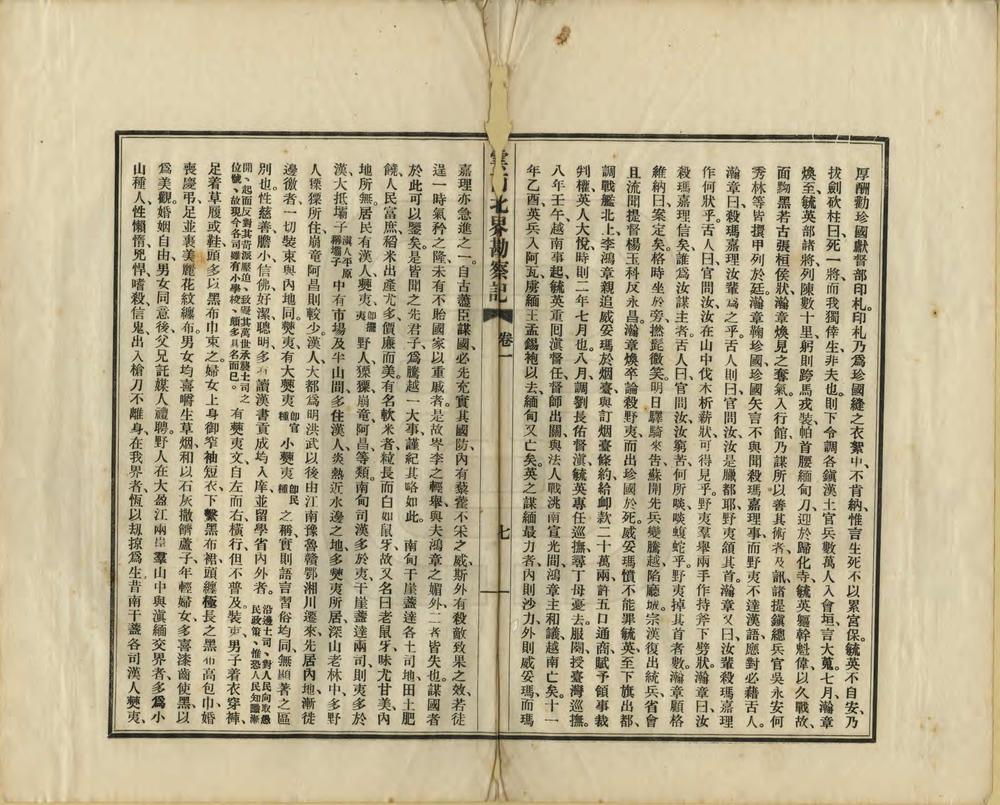 厚酬勸珍國獻督部印札、印札乃爲珍國縫之衣絮中不肯納惟言生死不以累宮保。毓英不自安、乃
拔劍砍柱曰死一將而我獨倖生非夫也。則下令調各鎭漢土官兵數萬人入會垣言大蒐。七月瀚章
煥至、毓英部諸將列陳數十里、躬則跨馬戎裝帕首腰緬甸刀迎於歸化寺。毓英軀幹魁偉以久戰故、
面黝黑若古張桓侯狀。瀚章煥見之奪氣、入行館乃謀所以善其術者及訊諸提鎭總兵官吳永安何
秀林等皆擐甲列於廷。瀚章鞠珍國珍國矢言不與聞殺瑪嘉理事而野夷不達漢語、應對必藉舌人。
瀚章曰殺瑪嘉理汝輩爲之乎。舌人則曰官問汝、汝是臘都耶、野夷頷其首。瀚章又曰汝輩殺瑪嘉理
作何狀乎。舌人曰官問汝、汝在山中伐木析薪狀可得見乎、野夷羣舉兩手作持斧下劈狀。瀚章曰汝
殺瑪嘉理信矣誰爲汝謀主者。舌人曰官問汝、汝窮苦何所啖啖蝮蛇乎、野夷掉其首者數。瀚章顧格
維納曰案定矣。格時坐於旁撚髭微笑。明日驛騎來告蘇開先兵變騰越陷廳城。宗漢復出統兵、省會
且流聞提督楊玉科反永昌。瀚章煥卒論殺野夷而出珍國於死。威妥瑪憤不能罪毓英、至下旗出都、
調戰艦北上。李鴻章親追威妥瑪於烟臺與訂烟臺條約、給卹款二十萬兩許五口通商、賦予領事裁
判權、英人大悅、時則二年七月也。八月調劉長佑督滇毓英專任巡撫、尋丁母憂去服闋授臺灣巡撫。
八年壬午越南事起毓英重回滇督任督師出關、與法人戰洮南宣光間、鴻章主和議越南亡矣。十一
年乙酉英兵入阿瓦虜緬王孟錫袍以去緬甸又亡矣。英之謀緬最力者內則沙力外則威妥瑪而瑪
雲南北界勘察記
卷一
七
嘉理亦急進之一。自古藎臣謀國必先充實其國防、內有藜藿不采之威、斯外有殺敵致果之效、若徒
逞一時氣矜之隆未有不貽國家以重戚者。是故岑李之輕舉與夫鴻章之媚外二者皆失也。謀國者
於此可以鑒矣。是皆聞之先君子爲騰越一大事、謹紀其略如此。 南甸干崖盞達各土司地田土肥
饒人民富庶稻米出產尤多價廉而美、有名軟米者粒長而白如鼠牙故又名曰老鼠牙、味尤甘美、內
地所無。居民有漢人僰夷夷卽擺野人猓猓崩竜阿昌等類。南甸司漢多於夷、干崖盞達兩司則夷多於
漢大抵壩子滇人平原稱壩子中有市場及半山間多住漢人、炎熱近水邊之地多僰夷所居、深山老林中、多野
人猓猓所住、崩竜阿昌則較少。漢人大都爲明洪武以後由江南豫魯贛鄂湘川遷來、先居內地漸徙
邊徼者、一切裝束與內地同。僰夷有大僰夷種卽官小僰夷種卽民之稱、實則語言習俗均同、無顯著之區
別也。性慈善膽小信佛好潔聰明、多有讀漢書貢成均入庠並留學省內外者。沿邊土司、對人民向取愚民政策、惟恐人民知識漸
開、起而反對其苛派壓迫、致礙其萬世承襲土司之位號、故現今各司雖有小學校、類多具名而已。有僰夷文自左而右橫行、但不普及。裝束、男子着衣穿褲、
足着草履或鞋、頭多以黑布巾束之。婦女上身御窄袖短衣、下繫黑布裙、頭纏極長之黑布高包巾、婚
喪慶弔足並裹美麗花紋纏布。男女均喜嚼生草烟和以石灰撒䤸蘆子、年輕婦女多喜漆齒使黑以
爲美觀。婚姻自由、男女同意後父兄託媒人禮聘。野人在大盈江兩岸羣山中與滇緬交界者多爲小
山種人、性懶惰兇悍嗜殺、信鬼、出入槍刀不離身、在我界者恆以刼掠爲生、昔南干盞各司漢人僰夷、